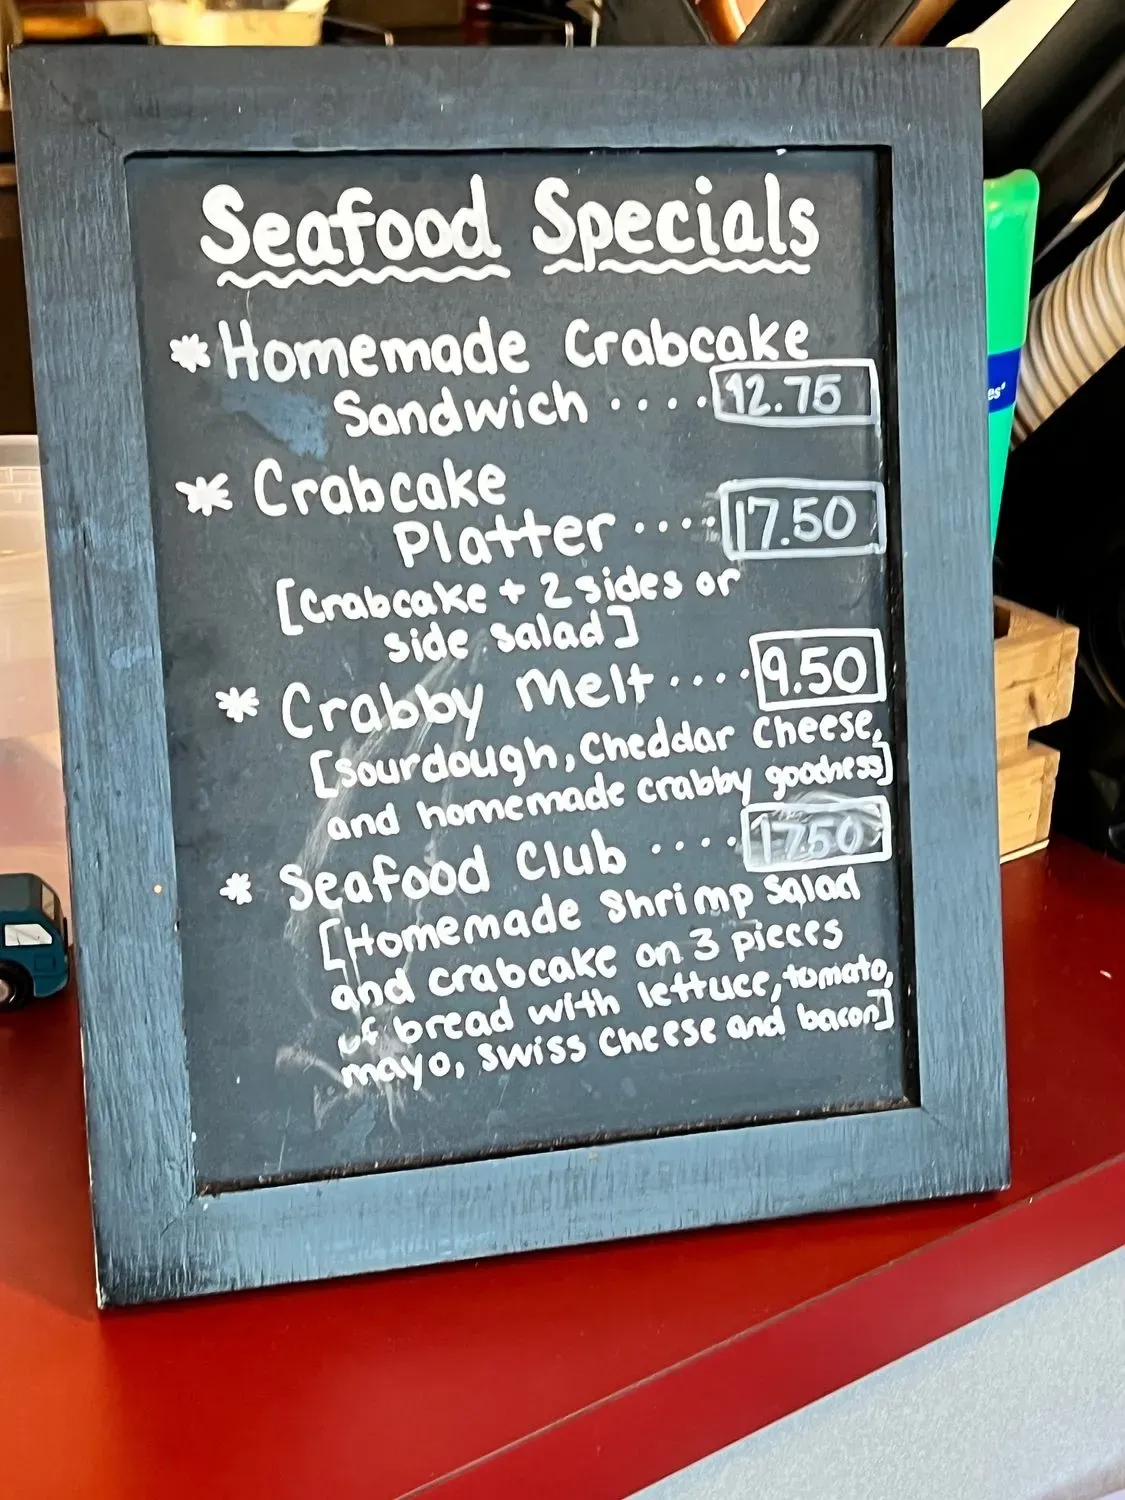 Seafood Specials
* Homemade Crabcake
Sandwich .... 12.75
* Crabcake
Platter .... 17.50
[Crabcake + 2 sides or
side salad]
* Crabby Melt .... 9.50
[Sourdough, Cheddar Cheese,
and homemade crabby goodness]
* Seafood Club .... 17.50
[Homemade Shrimp Salad
and crabcake on 3 pieces
of bread with lettuce, tomato,
mayo, swiss cheese and bacon]
es'